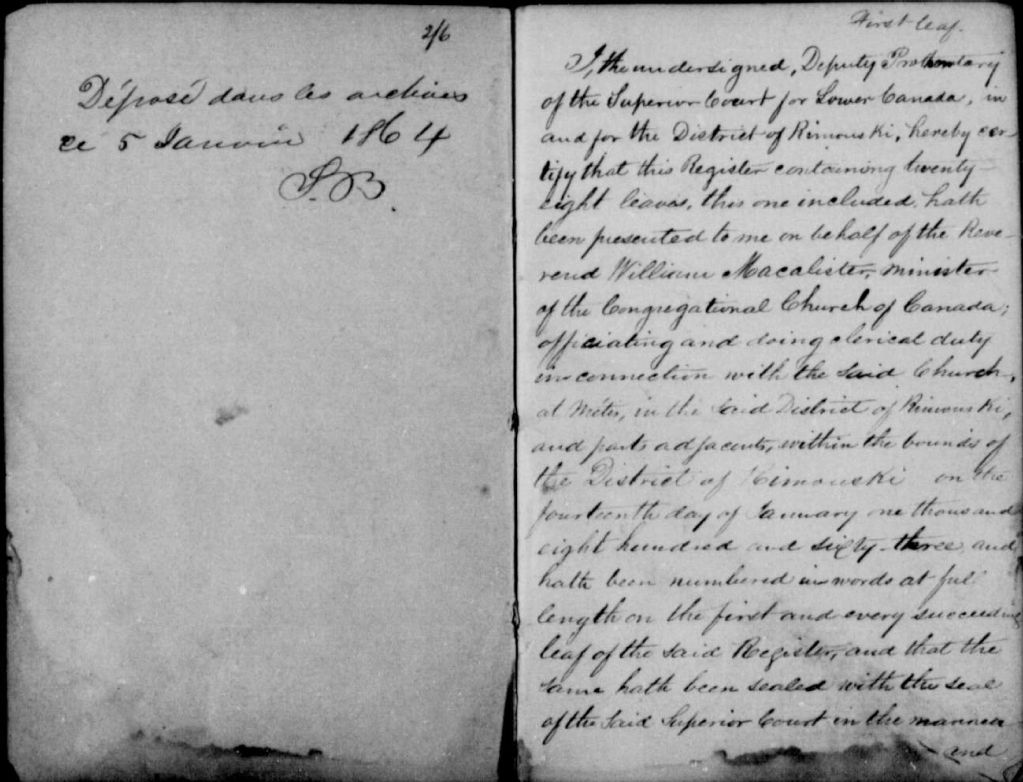 2/6
Déposé dans les archives
ce 5 Janvier 1864
S.B.
First leaf.
I, the undersigned, Deputy Prothonotary
of the Superior Court for Lower Canada, in
and for the District of Rimouski, hereby cer-
tify that this Register containing twenty-
eight leaves, this one included, hath
been presented to me on behalf of the Reve-
rend William Macalister, minister
of the Congregational Church of Canada;
officiating and doing clerical duty
in connection with the said Church,
at Métis, in the said District of Rimouski,
and parts adjacents, within the bounds of
the District of Rimouski on the
fourteenth day of January one thousand
eight hundred and sixty-three, and
hath been numbered in words at full
length on the first and every succeeding
leaf of the said Register, and that the
same hath been sealed with the seal
of the said Superior Court in the manner
and